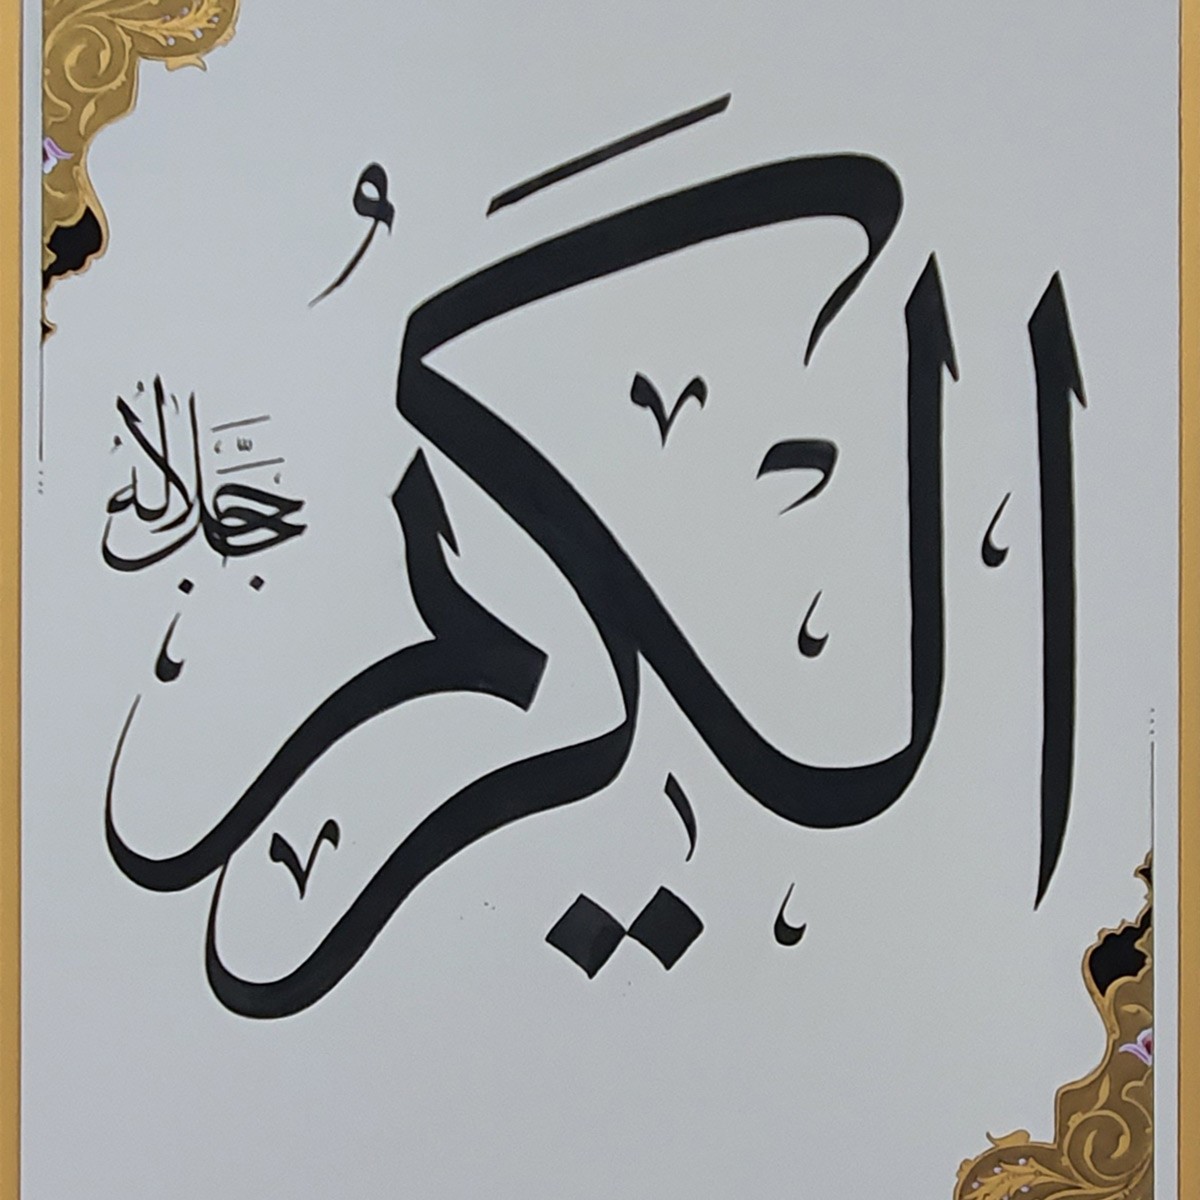 الكريمُ
جَلَّ جَلَالُهُ